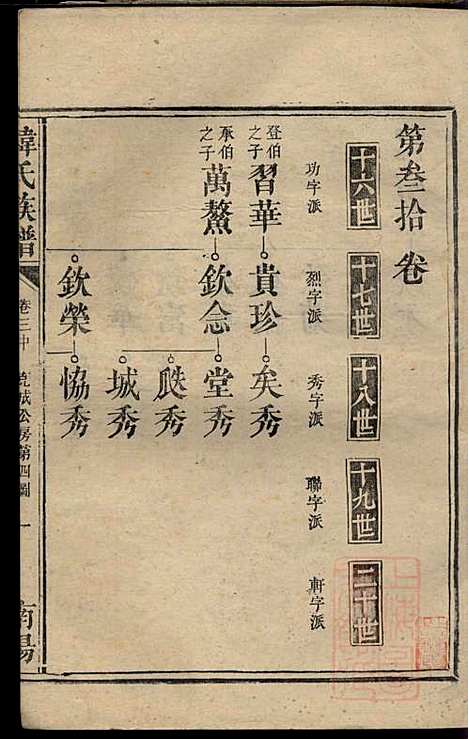 第叁拾卷
十六世 十七世 十八世 十九世 二十世
功字派 烈字派 秀字派 聯字派 軒字派
登伯之子 習華 貴珍 矣秀
承伯之子 萬鰲 欽念 堂秀
瓞秀
城秀
欽榮 恊秀
韓氏族譜 卷三十 克誠公房第四圖 一 南陽